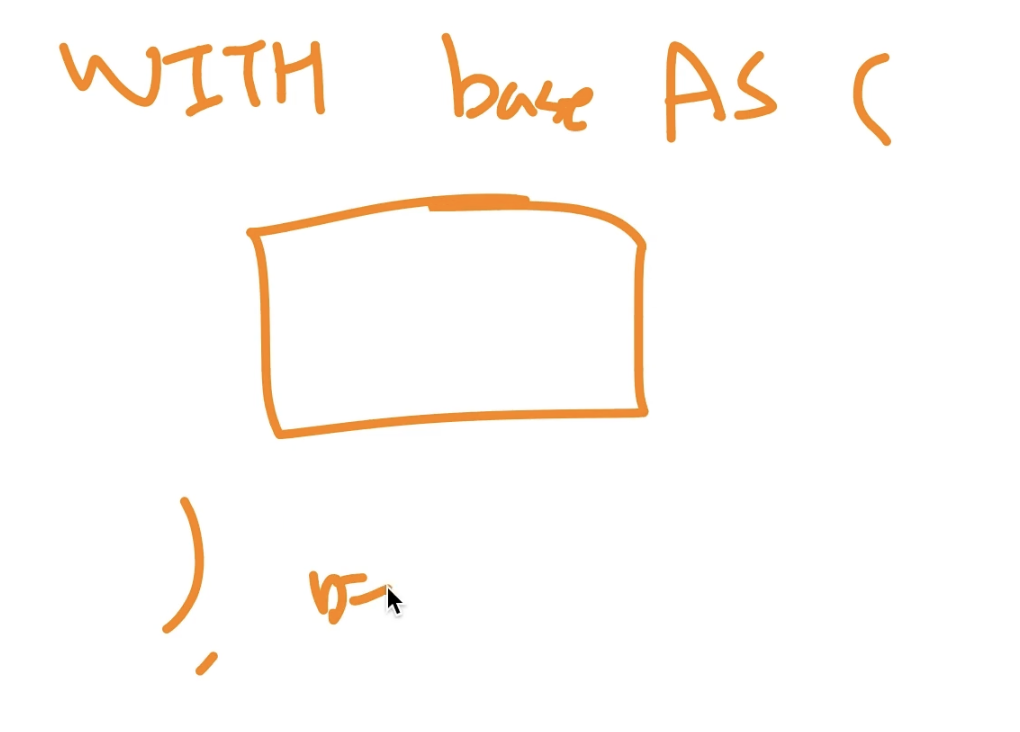 WITH base AS (
)
,